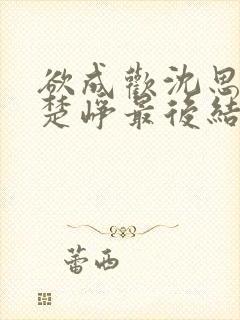 欲成歡沈思
楚崢最後結
蕾西